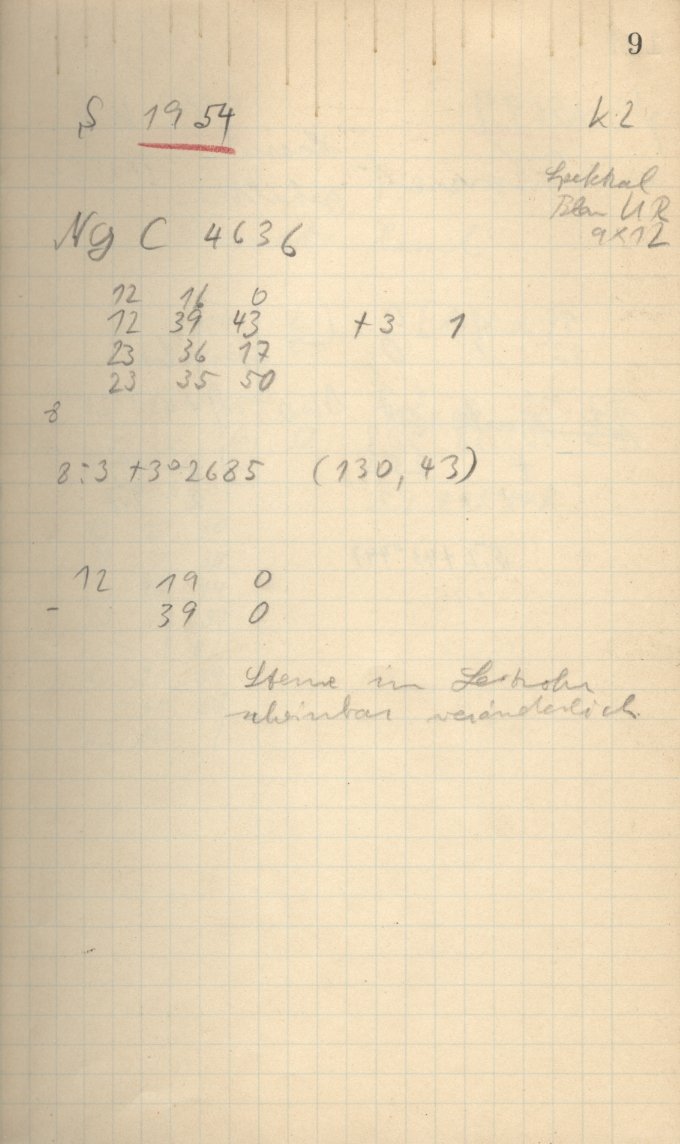 9
S 1954 K2
Spektral
Blau UR
9×12
Ng C 4636
12 16 0
12 39 43 +3 1
23 36 17
23 35 50
8
8:3 +3°2685 (130, 43)
12 19 0
- 39 0
Sterne im Leitrohr
scheinbar veränderlich